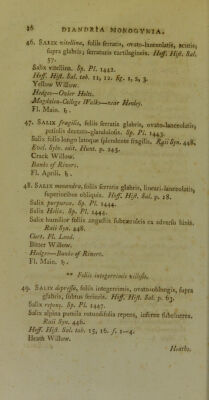 16 DIANDRIA MONOGYNIA.
46. SALIX vitellina, foliis serratis, ovato-lanceolatis, acutis;
supra glabris; serraturis cartilagineis. Hoff. Hist. Sal.
57.
Salix vitellina. Sp. Pl. 1442.
Hoff. Hist. Sal. tab. 11, 12. fig. 1, 2, 3.
Yellow Willow.
Hedges—Osier Holts.
Magdalen-College Walks—near Henley.
Fl. Main. ♄.
47. SALIX fragilis, foliis serratis glabris, ovato-lanceolatis;
petiolis dentato-glandulosis. Sp. Pl. 1443.
Salix folio longo latoque splendente fragilis. Raii Syn. 448.
Evel. Sylv. edit. Hunt. p. 245.
Crack Willow.
Banks of Rivers.
Fl. Aprili. ♄.
48. SALIX monandra, foliis serratis glabris, lineari-lanceolatis,
superioribus obliquis. Hoff. Hist. Sal. p. 18.
Salix purpurea. Sp. Pl. 1444.
Salix Helix. Sp. Pl. 1444.
Salix humilior foliis angustis subcæruleis ex adverso binis.
Raii Syn. 448.
Curt. Fl. Lond.
Bitter Willow.
Hedges—Banks of Rivers.
Fl. Main. ♄.
** Foliis integerrimis villosis.
49. SALIX depressa, foliis integerrimis, ovato-oblongis, supra
glabris, subtus sericeis. Hoff. Hist. Sal. p. 63.
Salix repens. Sp. Pl. 1447.
Salix alpina pumila rotundifolia repens, inferne subcinerea.
Raii Syn. 446.
Hoff. Hist. Sal. tab. 15, 16. f. 1—4.
Heath Willow.
Heaths.